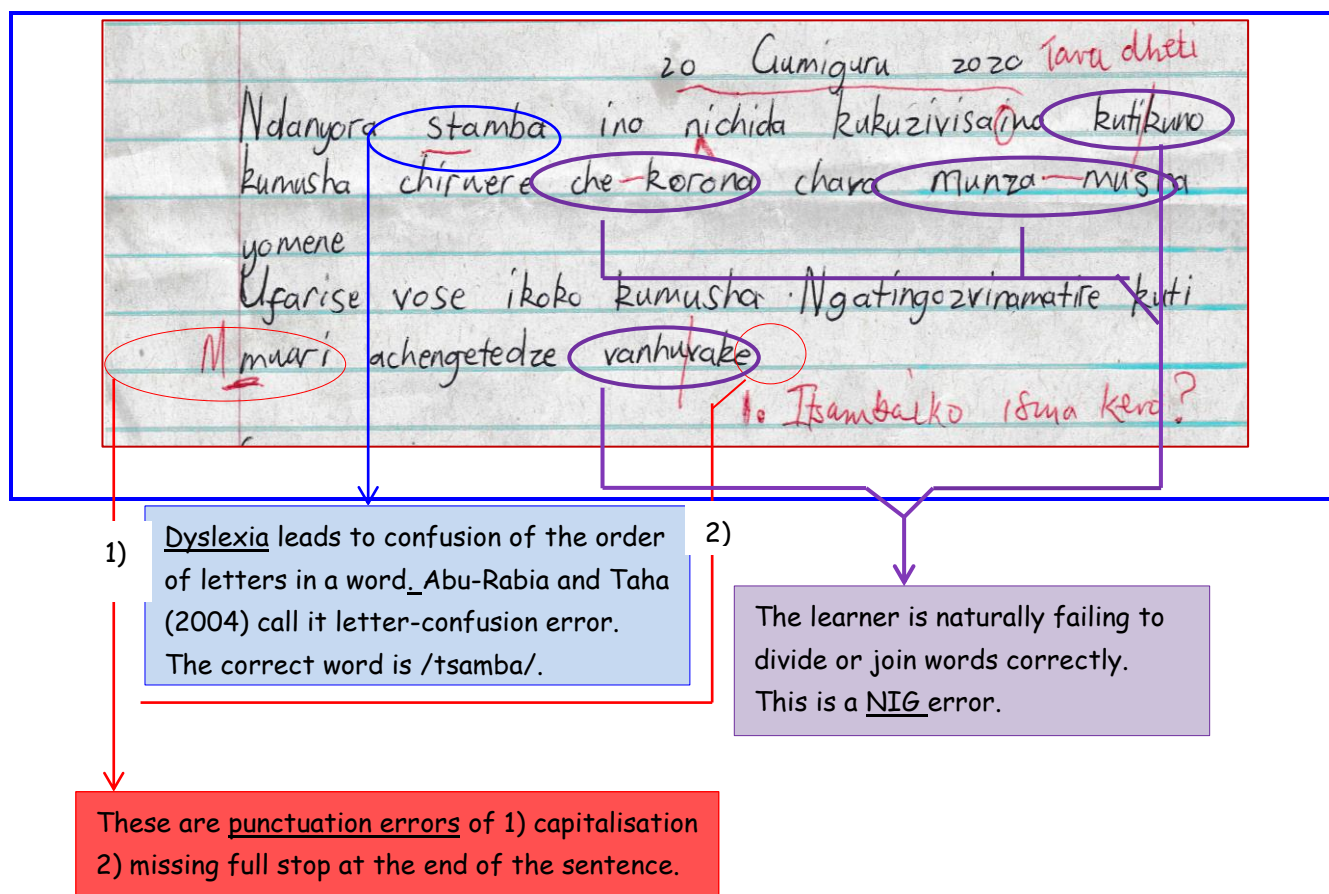 20 Gumiguru 2020 Tava dheti
Ndanyora stamba ino nichida kukuzivisaino kutikuno
kumusha chirwere che-korona chava munza-musha
yomene
Ufarise vose ikoko kumusha. Ngatingozvinamatire kuti
M mwari achengetedze vanhuvake
1. Itsambaiko isina kero?
1)
Dyslexia leads to confusion of the order
of letters in a word. Abu-Rabia and Taha
(2004) call it letter-confusion error.
The correct word is /tsamba/.
2)
The learner is naturally failing to
divide or join words correctly.
This is a NIG error.
These are punctuation errors of 1) capitalisation
2) missing full stop at the end of the sentence.